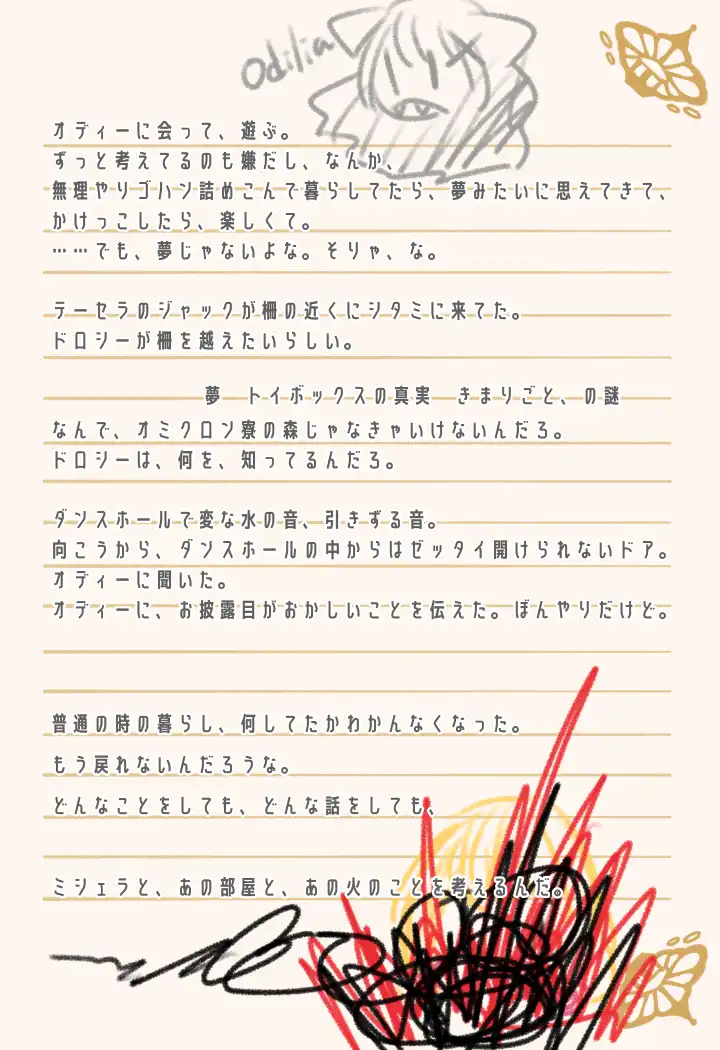 odilia
オディーに会って、遊ぶ。
ずっと考えてるのも嫌だし、なんか、
無理やりゴハン詰めこんで暮らしてたら、夢みたいに思えてきて、
かけっこしたら、楽しくて。
……でも、夢じゃないよな。そりゃ、な。
テーセラのジャックが柵の近くにシタミに来てた。
ドロシーが柵を越えたいらしい。
夢　トイボックスの真実　きまりごと、の謎
なんで、オミクロン寮の森じゃなきゃいけないんだろ。
ドロシーは、何を、知ってるんだろ。
ダンスホールで変な水の音、引きずる音。
向こうから、ダンスホールの中からはゼッタイ開けられないドア。
オディーに聞いた。
オディーに、お披露目がおかしいことを伝えた。ぼんやりだけど。
普通の時の暮らし、何してたかわかんなくなった。
もう戻れないんだろうな。
どんなことをしても、どんな話をしても、
ミシェラと、あの部屋と、あの火のことを考えるんだ。